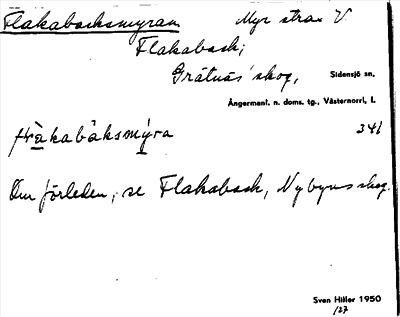 Flakabacksmyran Myr strax V.
Flakaback;
Grätnäs' skog, Sidensjö sn,
Ångermanl. n. doms. tg., Västernorrl. l.
flàkabàksmýra 341
Om förleden, se Flakaback, Nybyns skog.
Sven Hiller 1950
/37